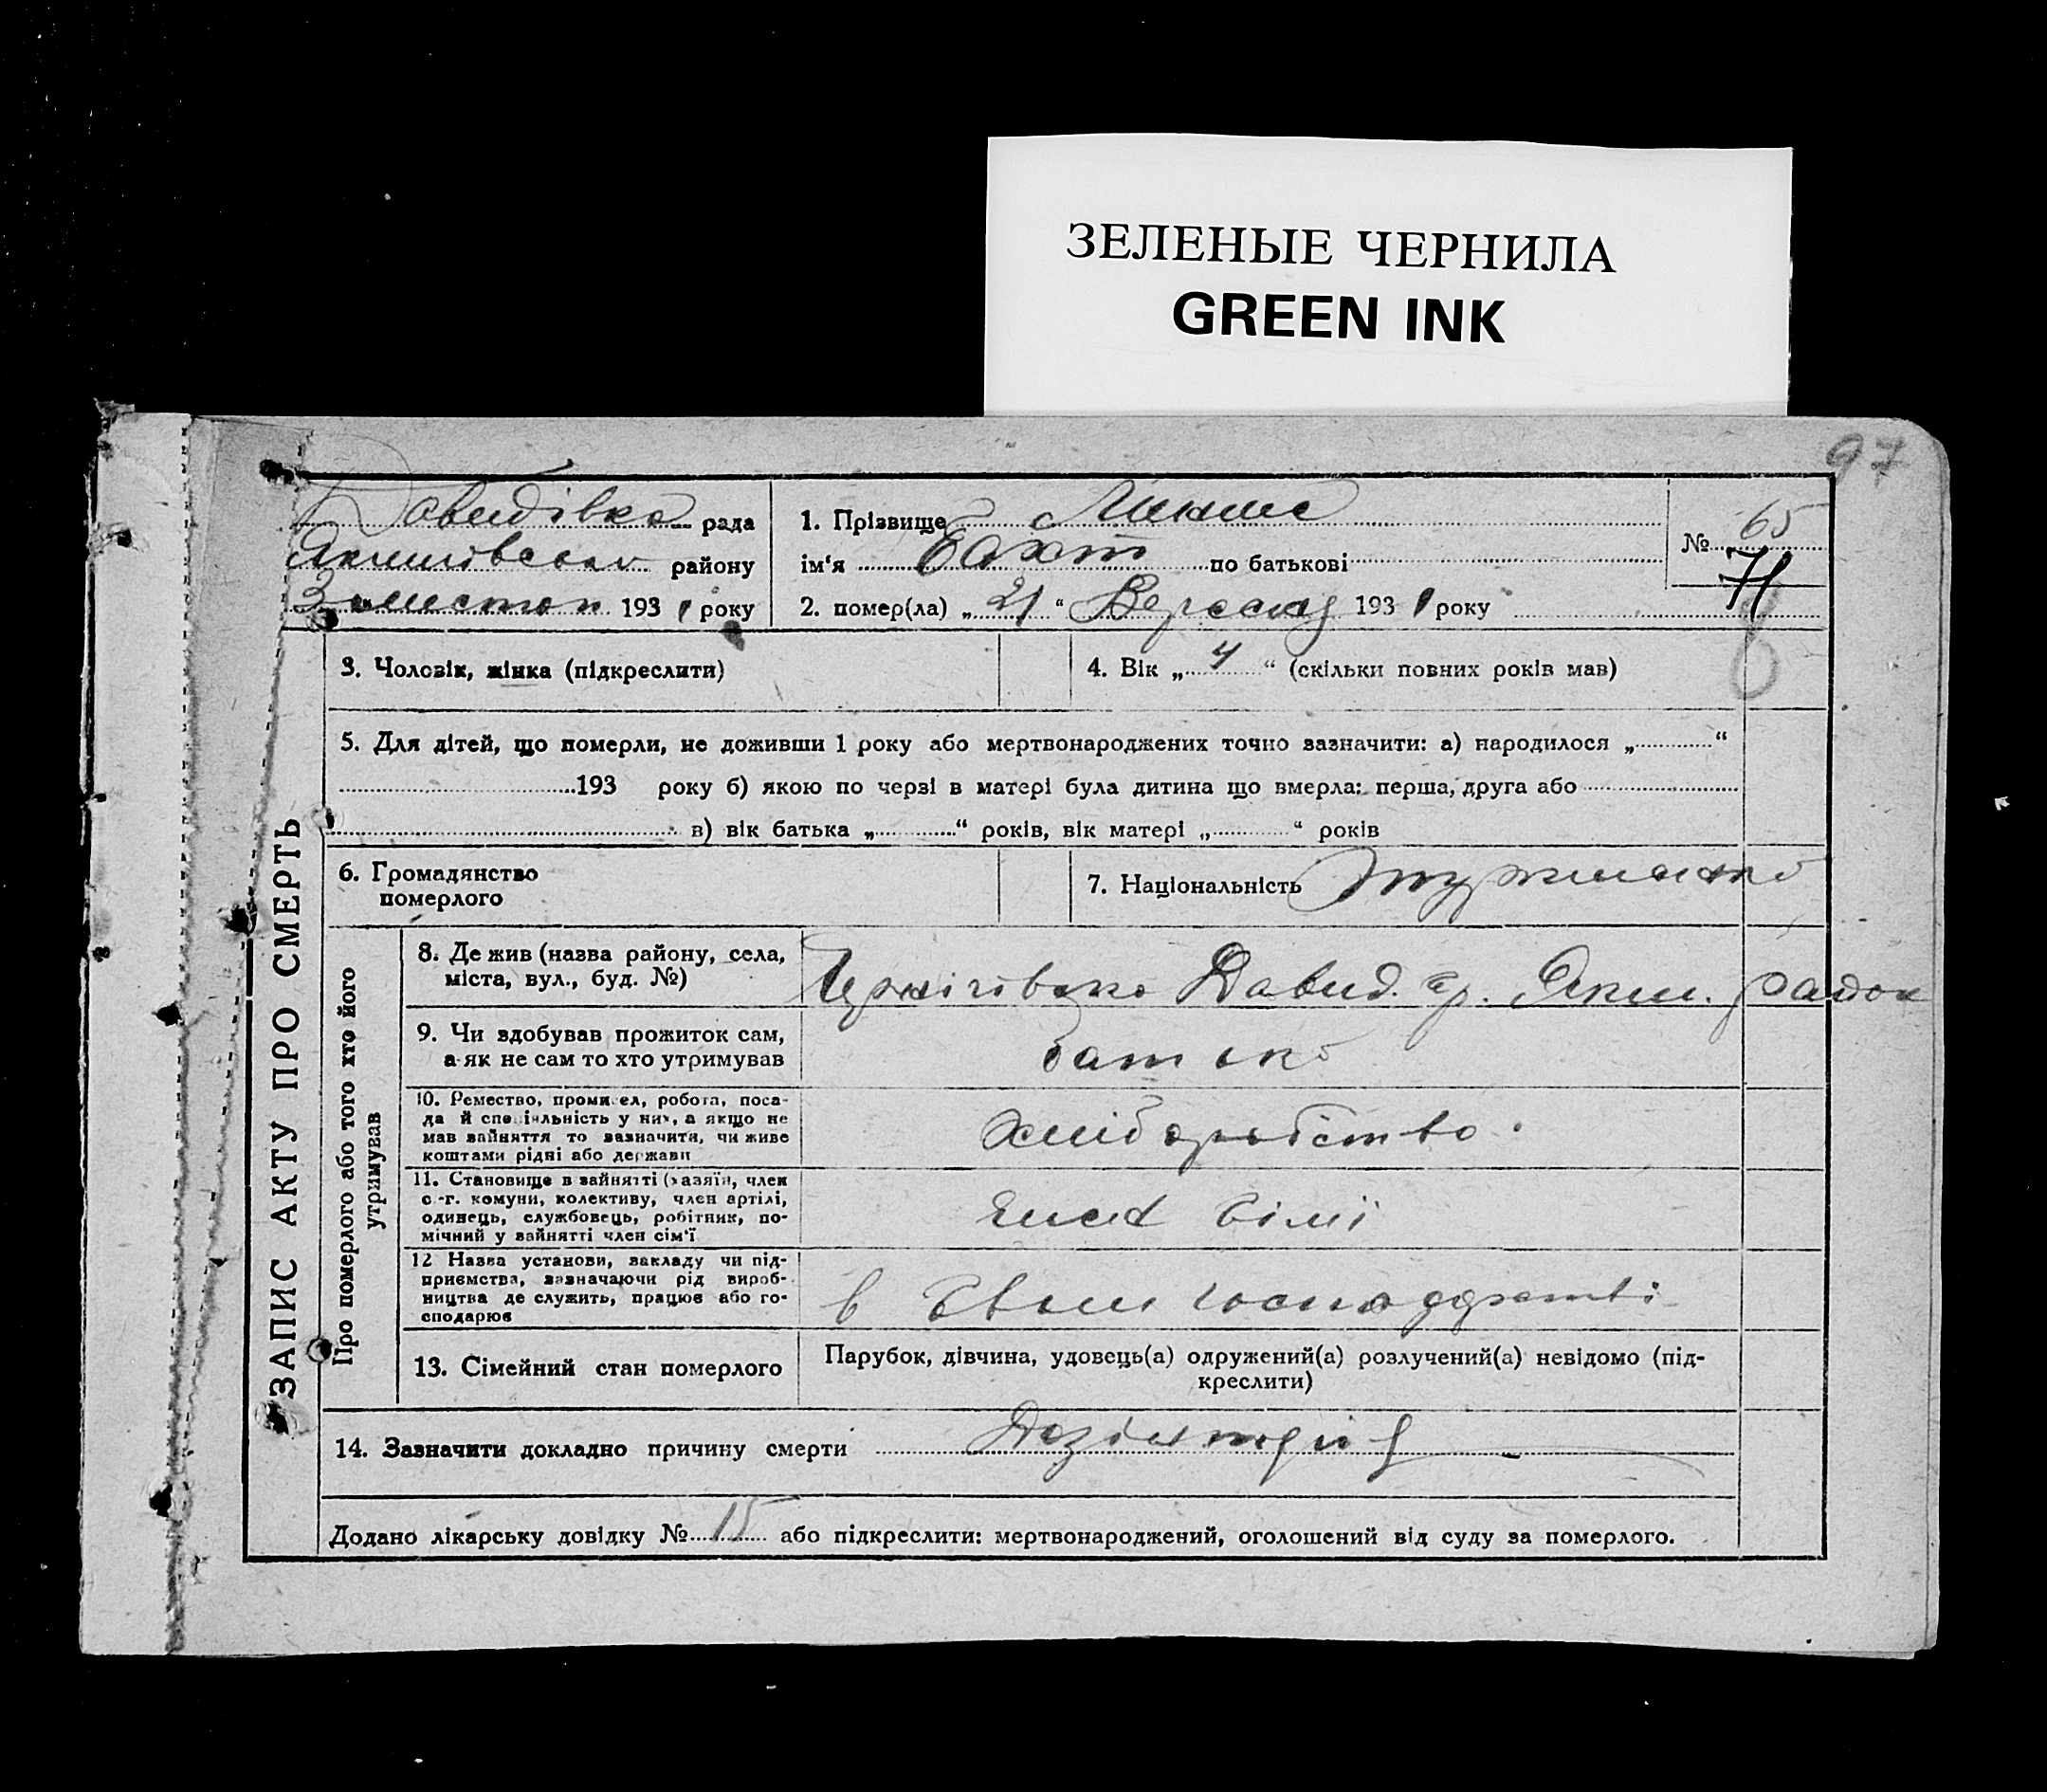 ЗЕЛЕНЫЕ ЧЕРНИЛА
GREEN INK
97
Давидівка рада
району
193 1 року
1. Прізвище
ім'я по батькові
2. помер(ла) „ 21 “ Вересня 193 1 року
№ 65
71
3. Чоловік, жінка (підкреслити)
4. Вік „ 4 “ (скільки повних років мав)
5. Для дітей, що померли, не доживши 1 року або мертвонароджених точно зазначити: а) народилося „ “
193 року б) якою по черзі в матері була дитина що вмерла: перша, друга або
в) вік батька „ “ років, вік матері „ “ років
6. Громадянство
померлого
7. Національність
ЗАПИС АКТУ ПРО СМЕРТЬ
Про померлого або того хто його
утримував
8. Де жив (назва району, села,
міста, вул., буд. №)
Давид. Яким. район
9. Чи здобував прожиток сам,
а як не сам то хто утримував
батько
10. Ремество, промисел, робота, поса-
да й спеціяльність у них, а якщо не
мав зайняття то зазначити, чи живе
коштами рідні або держави
хліборобство.
11. Становище в зайнятті (хазяїн, член
с.-г. комуни, колективу, член артілі,
одинець, службовець, робітник, по-
мічний у зайнятті член сім'ї
член сімї
12 Назва установи, закладу чи під-
приємства, зазначаючи рід вироб-
ництва де служить, працює або го-
сподарює
в своїм господарстві
13. Сімейний стан померлого
Парубок, дівчина, удовець(а) одружений(а) розлучений(а) невідомо (під-
креслити)
14. Зазначити докладно причину смерти
Дозінтерія
Додано лікарську довідку № 15 або підкреслити: мертвонароджений, оголошений від суду за померлого.